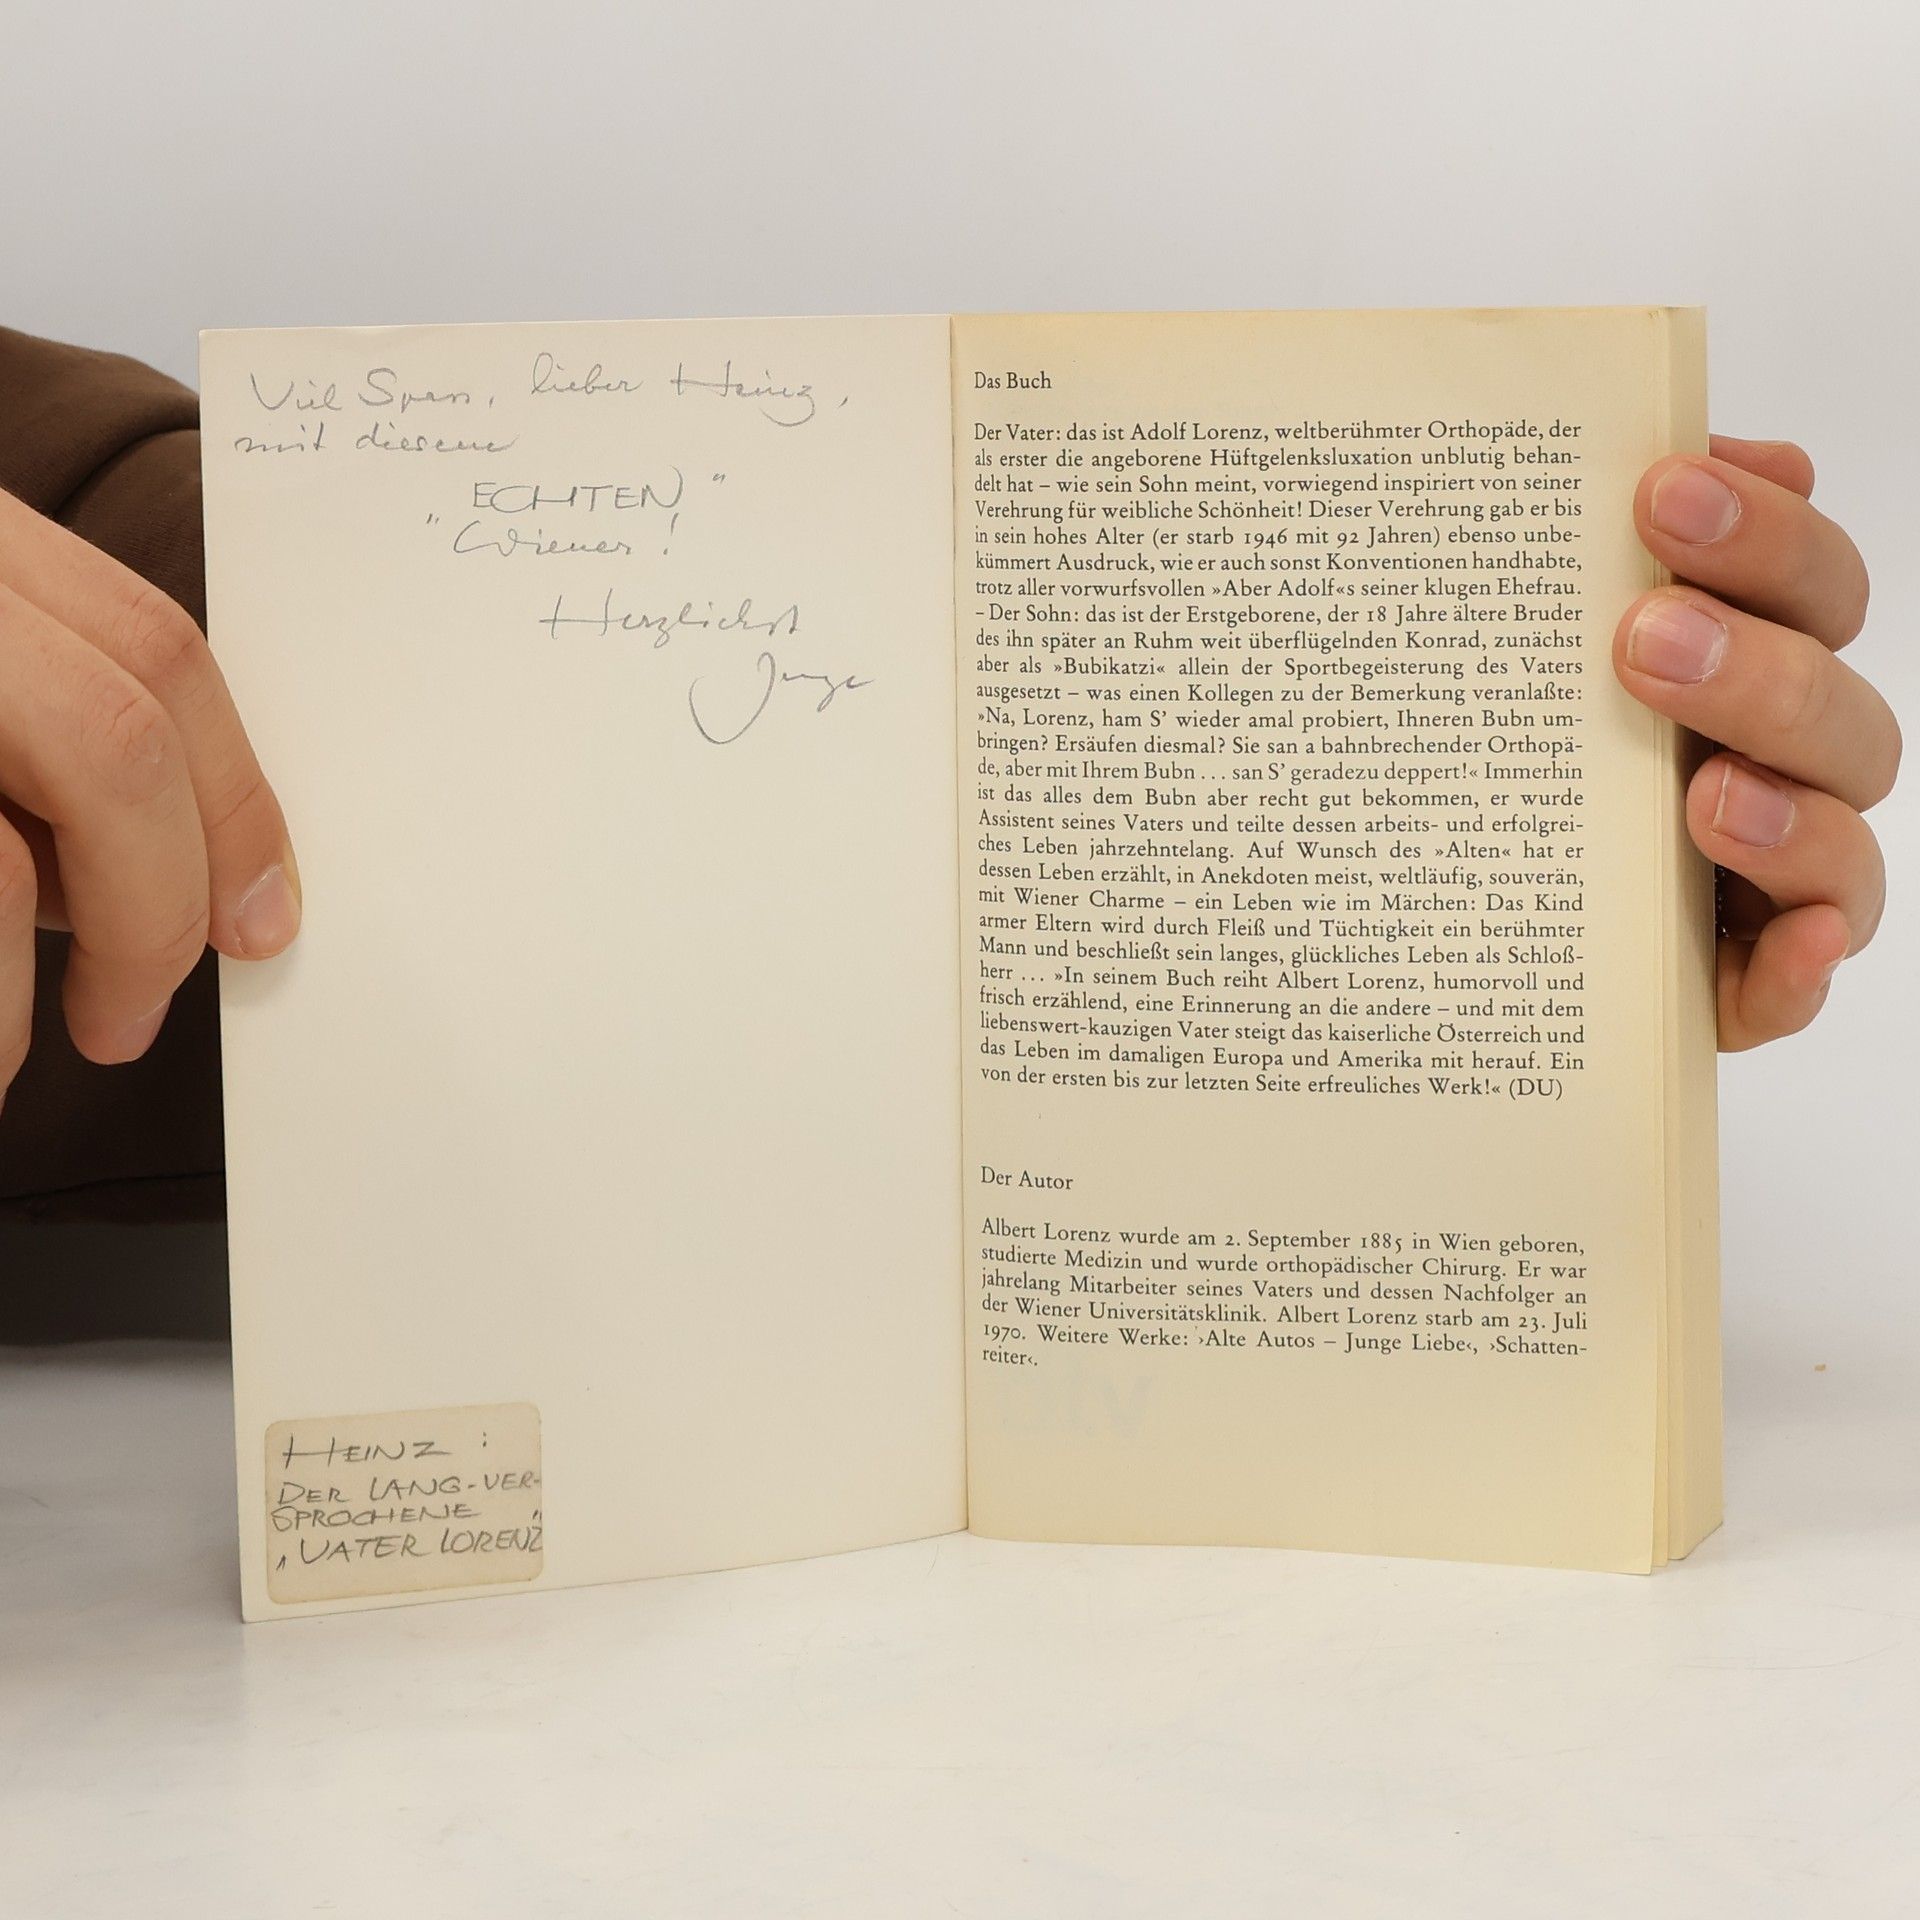 Viel Spass, lieber Heinz,
mit diesem
ECHTEN "
" Wiener !
Herzlichst
HEINZ :
DER LANG-VER-
SPROCHENE
„VATER LORENZ"
Das Buch
Der Vater: das ist Adolf Lorenz, weltberühmter Orthopäde, der
als erster die angeborene Hüftgelenksluxation unblutig behan-
delt hat – wie sein Sohn meint, vorwiegend inspiriert von seiner
Verehrung für weibliche Schönheit! Dieser Verehrung gab er bis
in sein hohes Alter (er starb 1946 mit 92 Jahren) ebenso unbe-
kümmert Ausdruck, wie er auch sonst Konventionen handhabte,
trotz aller vorwurfsvollen »Aber Adolf«s seiner klugen Ehefrau.
– Der Sohn: das ist der Erstgeborene, der 18 Jahre ältere Bruder
des ihn später an Ruhm weit überflügelnden Konrad, zunächst
aber als »Bubikatzi« allein der Sportbegeisterung des Vaters
ausgesetzt – was einen Kollegen zu der Bemerkung veranlaßte:
»Na, Lorenz, ham S’ wieder amal probiert, Ihneren Bubn um-
bringen? Ersäufen diesmal? Sie san a bahnbrechender Orthopä-
de, aber mit Ihrem Bubn . . . san S’ geradezu deppert!« Immerhin
ist das alles dem Bubn aber recht gut bekommen, er wurde
Assistent seines Vaters und teilte dessen arbeits- und erfolgrei-
ches Leben jahrzehntelang. Auf Wunsch des »Alten« hat er
dessen Leben erzählt, in Anekdoten meist, weltläufig, souverän,
mit Wiener Charme – ein Leben wie im Märchen: Das Kind
armer Eltern wird durch Fleiß und Tüchtigkeit ein berühmter
Mann und beschließt sein langes, glückliches Leben als Schloß-
herr . . . »In seinem Buch reiht Albert Lorenz, humorvoll und
frisch erzählend, eine Erinnerung an die andere – und mit dem
liebenswert-kauzigen Vater steigt das kaiserliche Österreich und
das Leben im damaligen Europa und Amerika mit herauf. Ein
von der ersten bis zur letzten Seite erfreuliches Werk!« (DU)
Der Autor
Albert Lorenz wurde am 2. September 1885 in Wien geboren,
studierte Medizin und wurde orthopädischer Chirurg. Er war
jahrelang Mitarbeiter seines Vaters und dessen Nachfolger an
der Wiener Universitätsklinik. Albert Lorenz starb am 23. Juli
1970. Weitere Werke: ›Alte Autos – Junge Liebe‹, ›Schatten-
reiter‹.